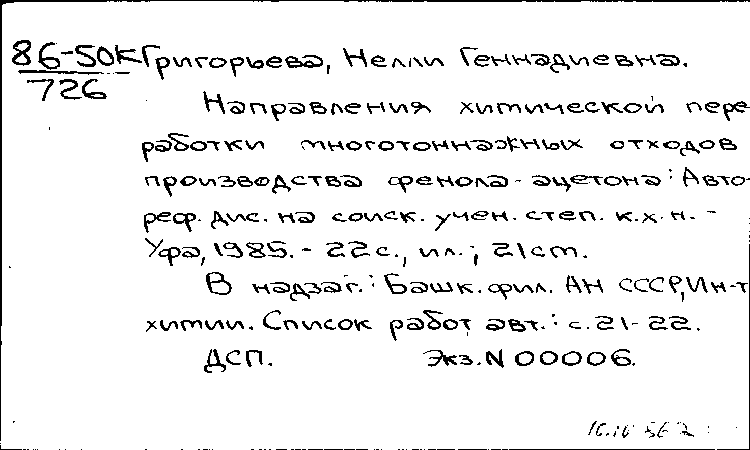 86-50К Григорьева, Нелли Геннадиевна.
726
Направления химической пере
работки многотоннажных отходов
производства фенола-ацетона: Авто-
реф. дис. на соиск. учен. степ. к.х.н. -
Уфа, 1985. - 22 с., ил.; 21 см.
В надзаг.: Башк. фил. АН СССР, Ин-т
химии. Список работ авт.: с. 21-22.
ДСП. Экз. N 00006.